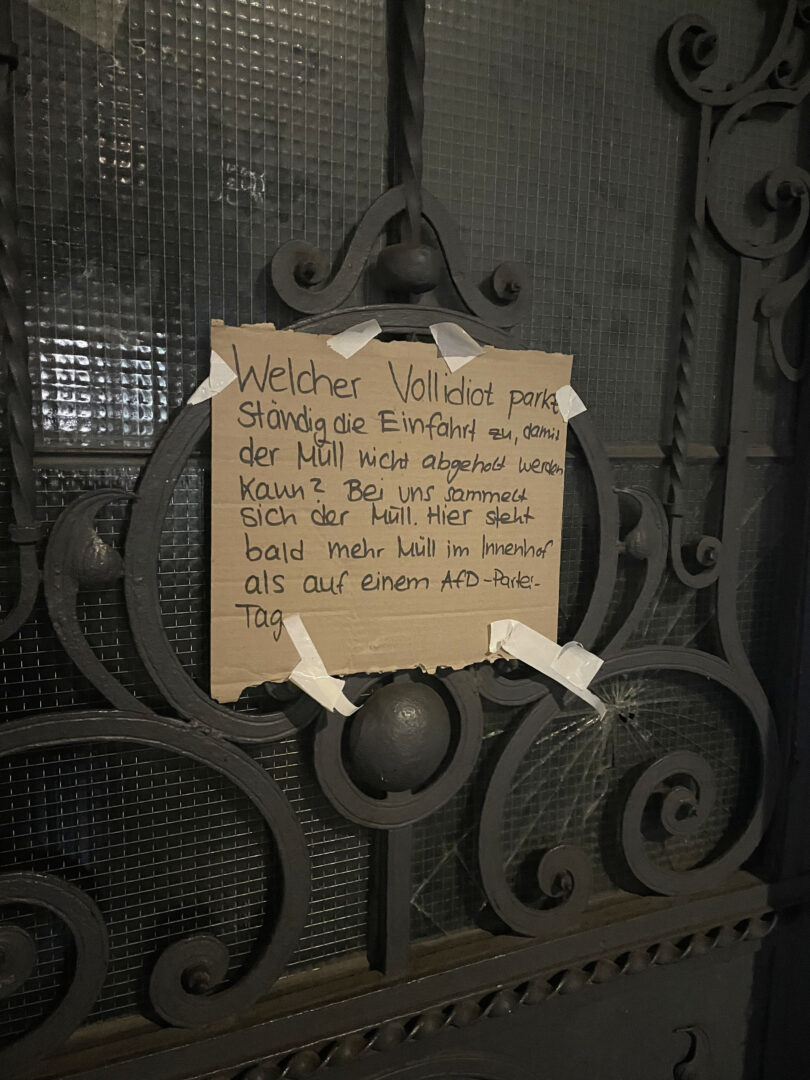 Welcher Vollidiot parkt
Ständig die Einfahrt zu, damit
der Müll nicht abgeholt werden
kann? Bei uns sammelt
sich der Müll. Hier steht
bald mehr Müll im Innenhof
als auf einem AfD-Partei-
Tag